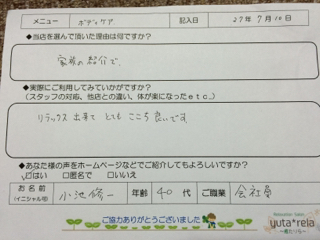 メニュー ボディケア 記入日 27年 7月 10日
◆当店を選んで頂いた理由は何ですか?
家族の紹介で、
◆実際にご利用してみていかがですか?
(スタッフの対応、他店との違い、体が楽になったetc.)
リラックス出来て とても ここち良いです
◆あなた様の声をホームページなどでご紹介してもよろしいですか?
☑はい □匿名で □いいえ
お名前 (イニシャル可) 小池修一 年齢 40代 ご職業 会社員
ご協力ありがとうございました
Relaxation Salon
yuta*rela
〜癒たりら〜